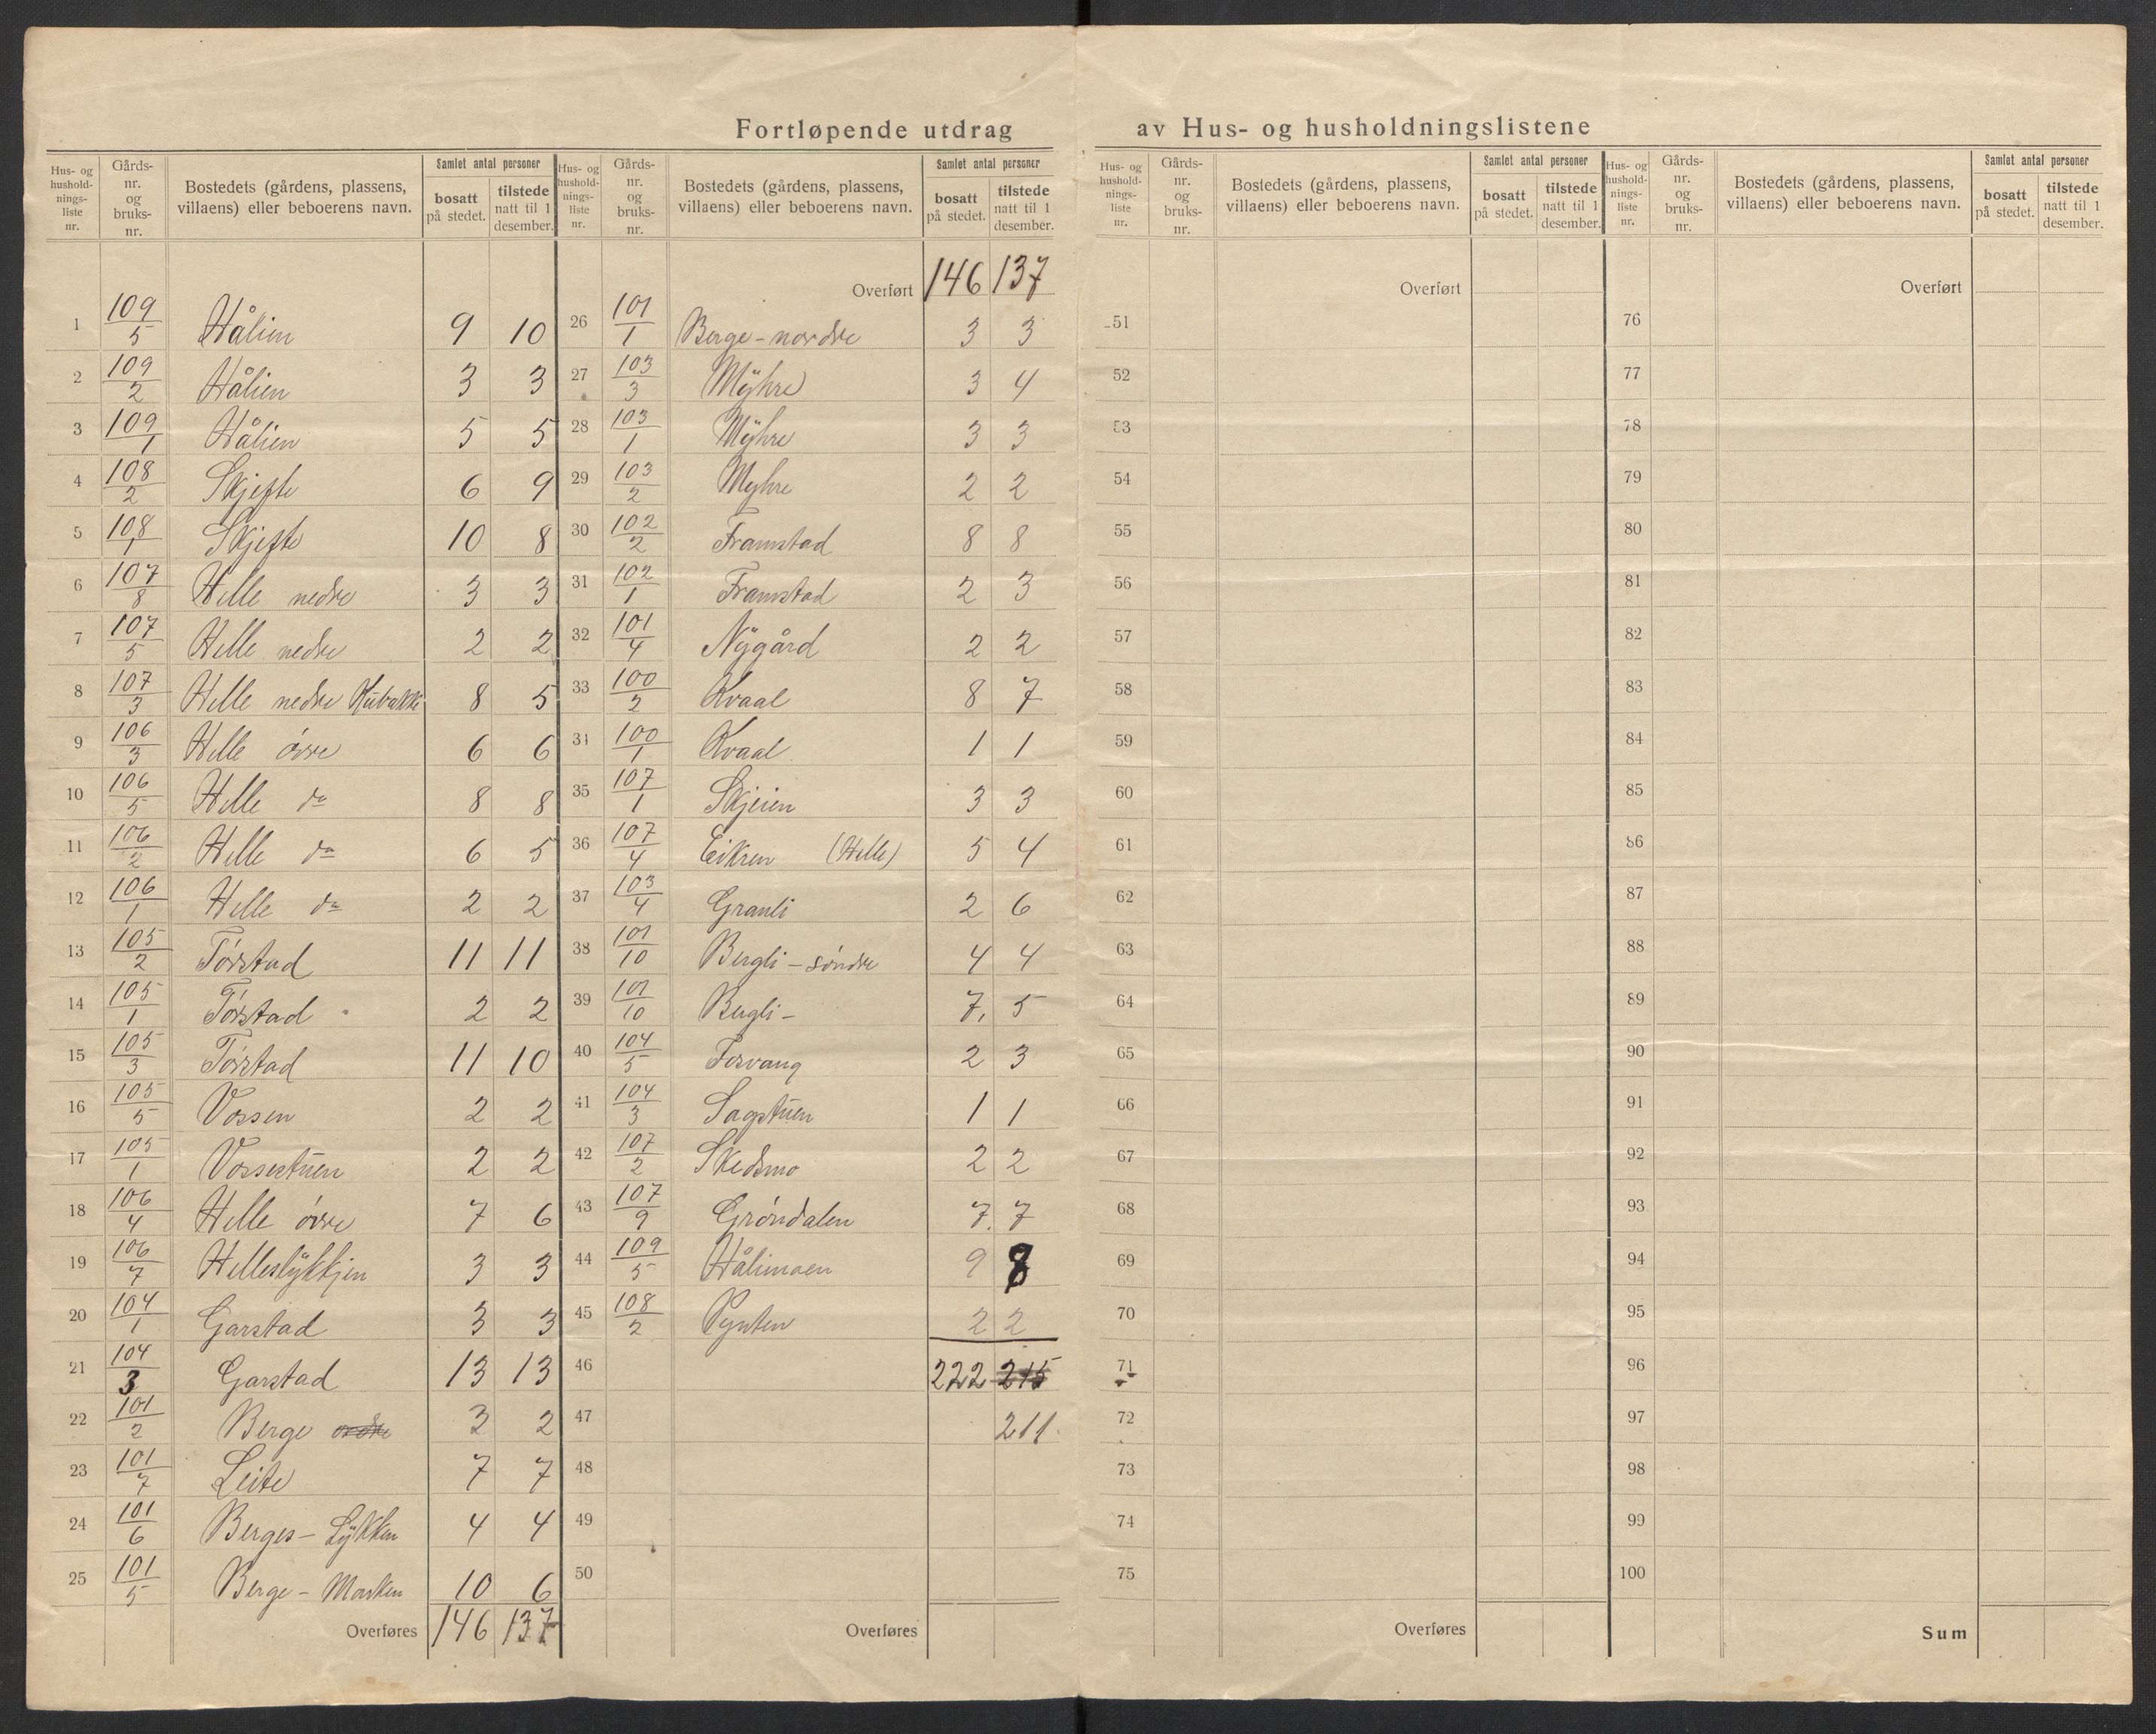 Fortløpende utdrag av Hus- og husholdningslistene
Hus- og husholdnings-liste nr. Gårds-nr. og bruks-nr. Bostedets (gårdens, plassens, villaens) eller beboerens navn. Samlet antal personer bosatt på stedet. tilstede natt til 1 desember.
1 109/5 Hålien 9 10
2 109/2 Hålien 3 3
3 109/1 Hålien 5 5
4 108/2 Skjefte 6 9
5 108/1 Skjefte 10 8
6 107/8 Helle nedre 3 3
7 107/5 Helle nedre 2 2
8 107/3 Helle nedre Kubakke 8 5
9 106/3 Helle övre 6 6
10 106/5 Helle do 8 8
11 106/2 Helle do 6 5
12 106/1 Helle do 2 2
13 105/2 Törstad 11 11
14 105/1 Törstad 2 2
15 105/3 Törstad 11 10
16 105/5 Vossen 2 2
17 105/1 Vossestuen 2 2
18 106/4 Helle övre 7 6
19 106/7 Helleslykkjen 3 3
20 104/1 Garstad 3 3
21 104/3 Garstad 13 13
22 101/2 Berge 3 2
23 101/7 Leite 7 7
24 101/6 Berges-Lykken 4 4
25 101/5 Berge-Marken 10 6
Overføres 146 137
Hus- og husholdnings-liste nr. Gårds-nr. og bruks-nr. Bostedets (gårdens, plassens, villaens) eller beboerens navn. Samlet antal personer bosatt på stedet. tilstede natt til 1 desember.
Overført 146 137
26 101/1 Berge-nordre 3 3
27 103/3 Myhre 3 4
28 103/1 Myhre 3 3
29 103/2 Myhre 2 2
30 102/2 Framstad 8 8
31 102/1 Framstad 2 3
32 101/4 Nygård 2 2
33 100/2 Kvaal 8 7
34 100/1 Kvaal 1 1
35 107/1 Skjeien 3 3
36 107/4 Eikren (Helle) 5 4
37 103/4 Granli 2 6
38 101/10 Bergli-söndre 4 4
39 101/10 Bergli- 7 5
40 104/5 Forvang 2 3
41 104/3 Sagstuen 1 1
42 107/2 Skedsmo 2 2
43 107/9 Gröndalen 7 7
44 109/5 Hålimoen 9 8
45 108/2 Pynten 2 2
46 222 215
47 211
48
49
50
Overføres
Hus- og husholdnings-liste nr. Gårds-nr. og bruks-nr. Bostedets (gårdens, plassens, villaens) eller beboerens navn. Samlet antal personer bosatt på stedet. tilstede natt til 1 desember.
Overført
51
52
53
54
55
56
57
58
59
60
61
62
63
64
65
66
67
68
69
70
71
72
73
74
75
Overføres
Hus- og husholdnings-liste nr. Gårds-nr. og bruks-nr. Bostedets (gårdens, plassens, villaens) eller beboerens navn. Samlet antal personer bosatt på stedet. tilstede natt til 1 desember.
Overført
76
77
78
79
80
81
82
83
84
85
86
87
88
89
90
91
92
93
94
95
96
97
98
99
100
Sum